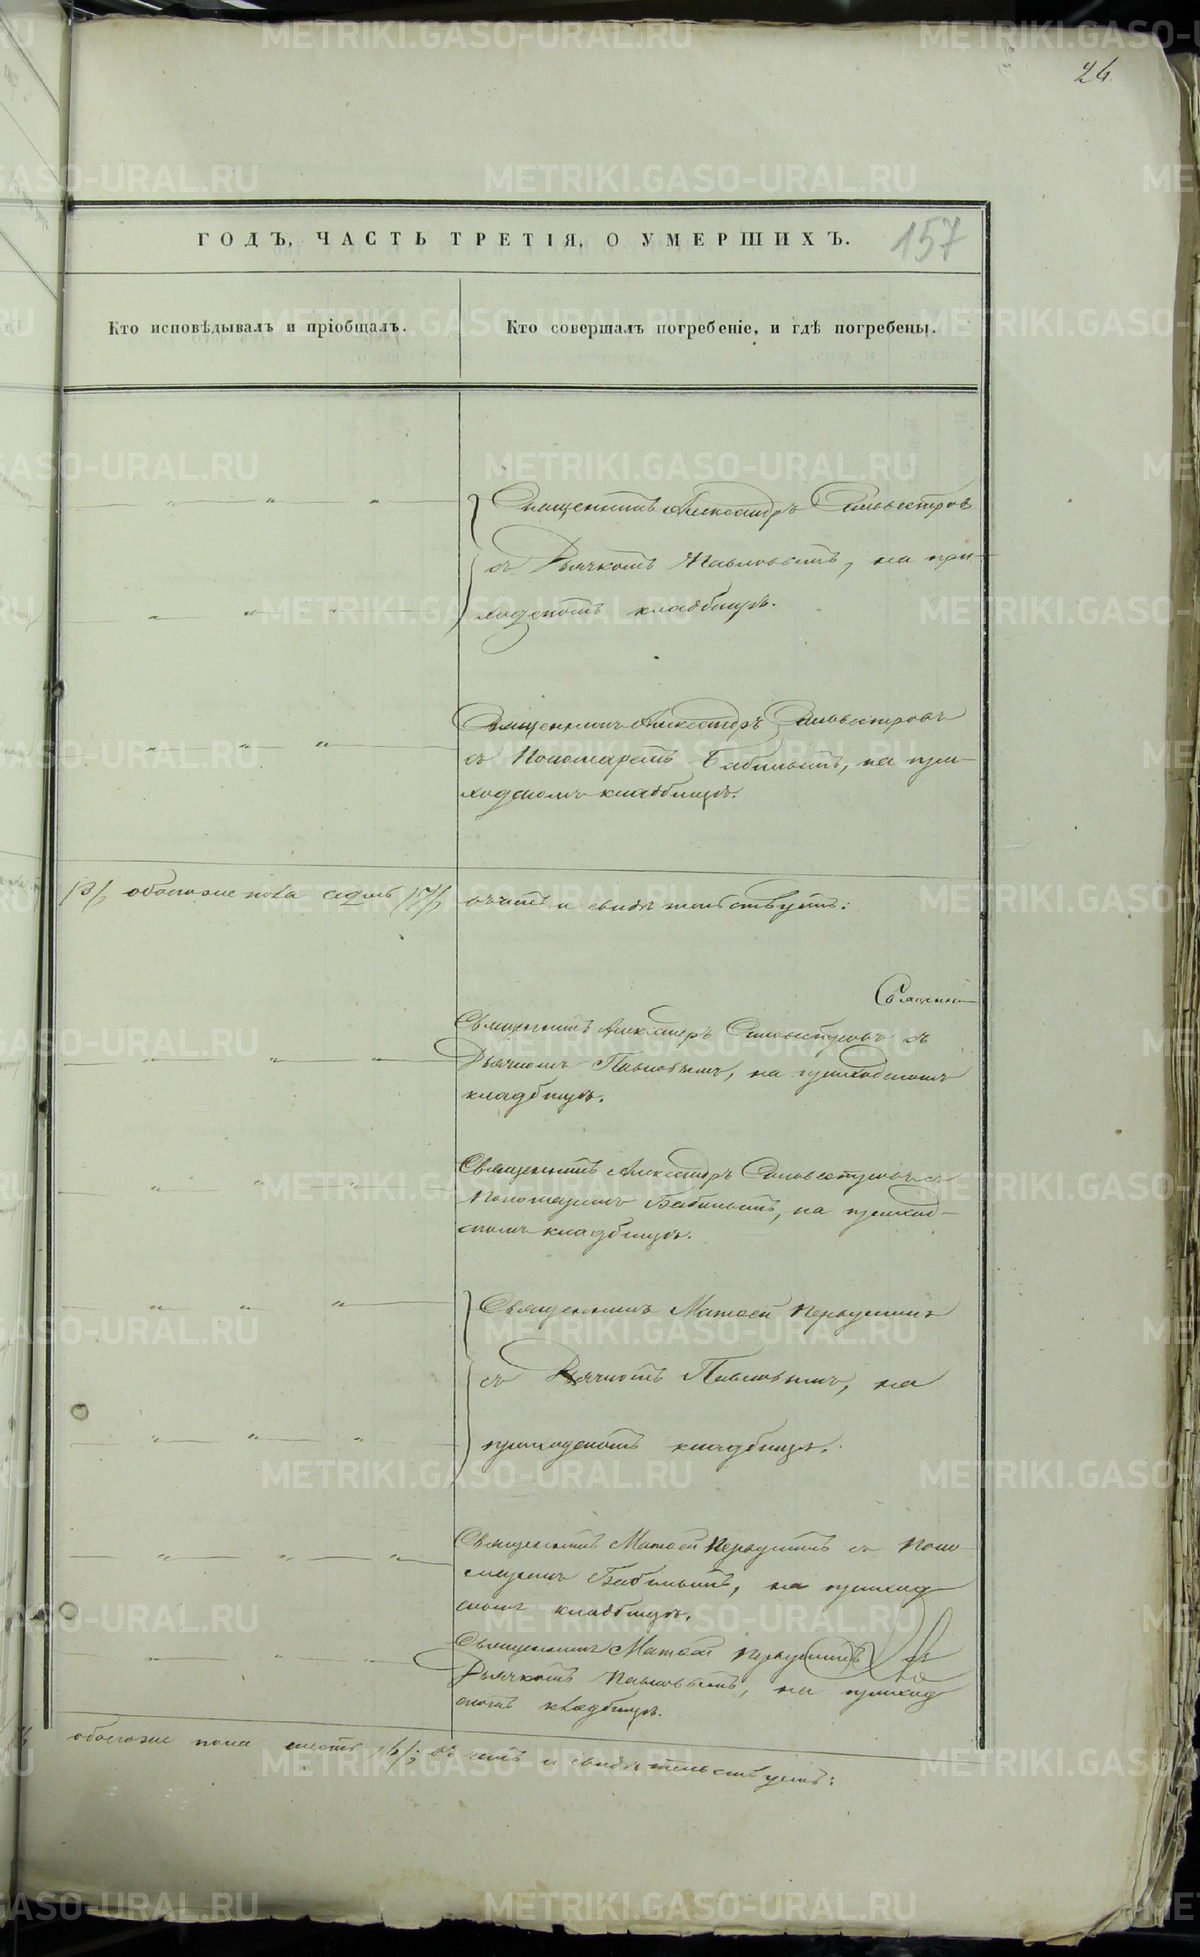 26
ГОДЪ, ЧАСТЬ ТРЕТІЯ, О УМЕРШИХЪ.
157
Кто исповѣдывалъ и пріобщалъ.
Кто совершалъ погребеніе, и гдѣ погребены.
Священникъ Александръ Сильвестров
съ Дьячкомъ Павловымъ, на при-
ходскомъ кладбищѣ.
Священникъ Александръ Сильвестровъ
съ Пономаремъ Бабинымъ, на при-
ходскомъ кладбищѣ.
обоего же пола седмь
въ чемъ и свидѣтельствуетъ:
Священникъ Александръ Сильвестровъ съ
Дьячкомъ Павловымъ, на приходскомъ
кладбищѣ.
Священникъ Александръ Сильвестровъ съ
Пономаремъ Бабинымъ, на приход-
скомъ кладбищѣ.
Священникъ Матѳей Первушинъ
съ Дьячкомъ Павловымъ, на
приходскомъ кладбищѣ.
Священникъ Матѳей Первушинъ съ Поно
маремъ Бабинымъ, на приход
скомъ кладбищѣ.
Священникъ Матѳей Первушинъ съ
Дьячкомъ Павловымъ, на приход
скомъ кладбищѣ.
обоего же пола шесть /6/; въ чемъ и свидѣтельствуетъ:
METRIKI.GASO-URAL.RU